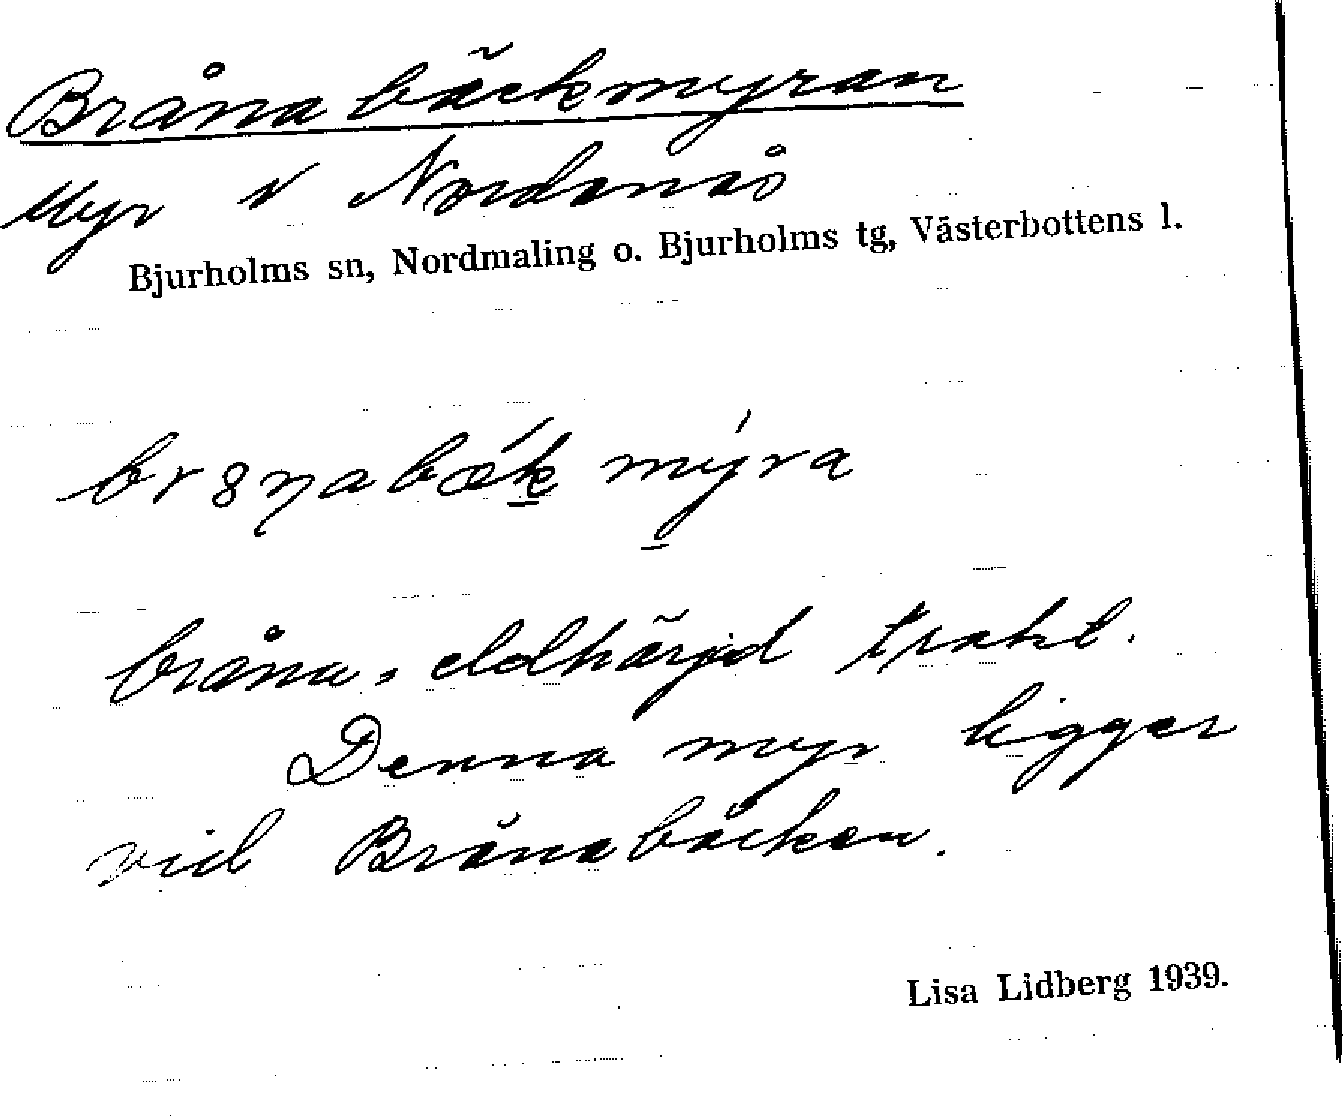 Brånabäckmyran
Myr N Nordansjö
Bjurholms sn, Nordmaling o. Bjurholms tg, Västerbottens l.
bråna, eldhärjd trakt.
Denna myr ligger
vid Brånabäcken.
Lisa Lidberg 1939.